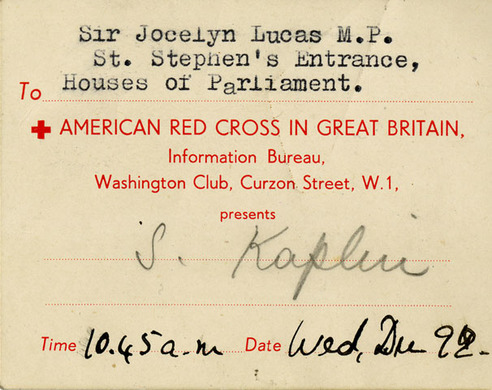 Sir Jocelyn Lucas M.P.
St. Stephen's Entrance,
To Houses of Parliament.
AMERICAN RED CROSS IN GREAT BRITAIN,
Information Bureau,
Washington Club, Curzon Street, W.1,
presents
S. Kaplin
Time 10.45 a.m Date Wed,